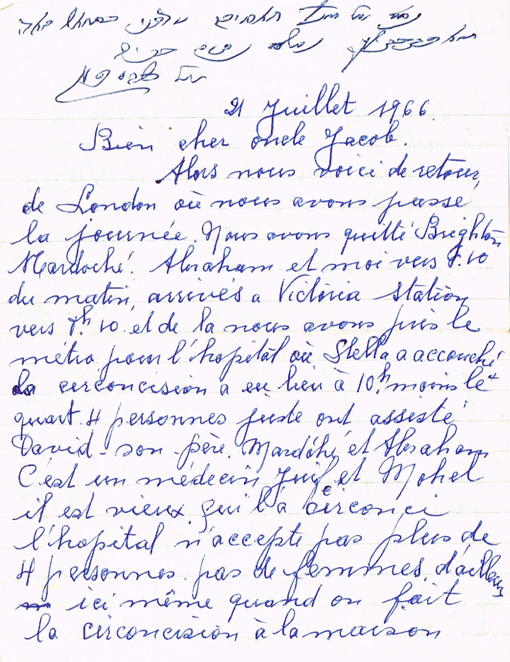 21 Juillet 1966.
Bien cher oncle Jacob.
Alors nous voici de retour,
de London où nous avons passé
la journée. Nous avons quitté Brighton
Mardoché. Abraham et moi vers 7.10
du matin, arrivés a Victoria Station
vers 8h 10. et de la nous avons pris le
métro pour l'hopital où Stella a accouché
la circoncision a eu lieu à 10h moins le
quart. 4 personnes juste ont assisté
David - son père. Mardché et Abraham
C'est un médecin Juif et Mohel
il est vieux qui l'a circonci
l'hopital n'accepte pas plus de
4 personnes. pas de femmes, d'ailleurs
ici même quand on fait
la circoncision à la maison